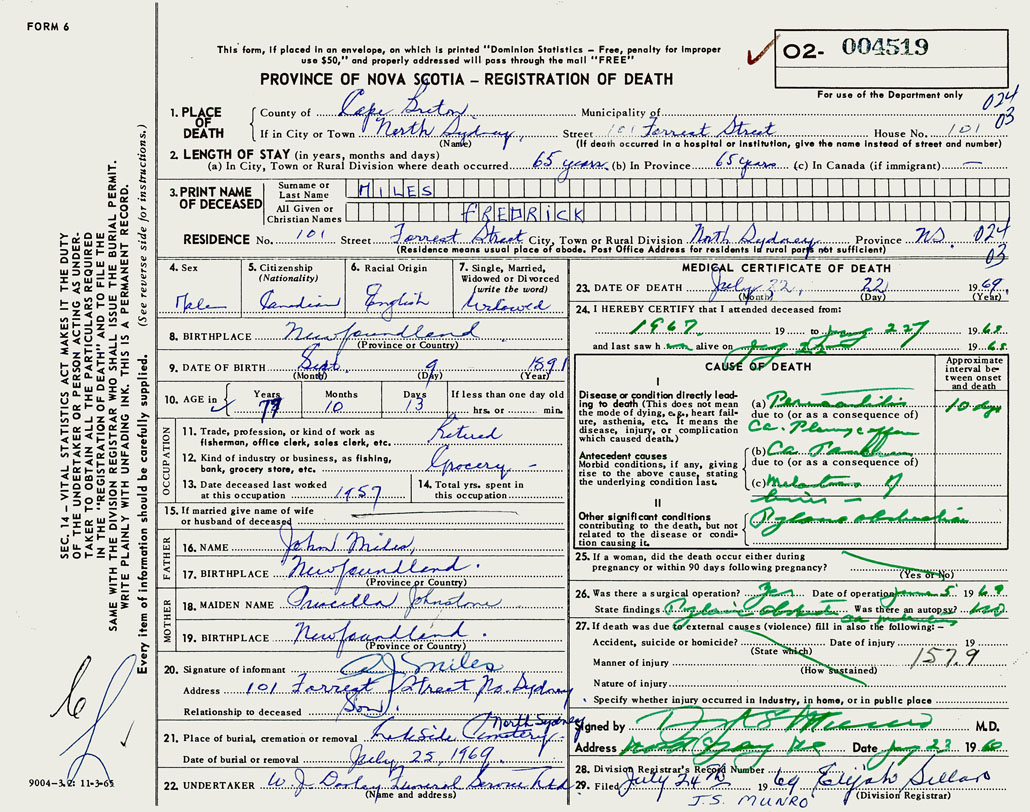 FORM 6
This form, if placed in an envelope, on which is printed "Dominion Statistics — Free, penalty for improper
use $50," and properly addressed will pass through the mail "FREE"
PROVINCE OF NOVA SCOTIA — REGISTRATION OF DEATH
02- 004519
For use of the Department only
024
03
1. PLACE OF DEATH County of Cape Breton Municipality of
If in City or Town North Sydney, Street 101 Forrest Street House No. 101
(Name) (If death occurred in a hospital or institution, give the name instead of street and number)
2. LENGTH OF STAY (in years, months and days)
(a) In City, Town or Rural Division where death occurred 65 years (b) In Province 65 years (c) In Canada (if immigrant) —
3. PRINT NAME OF DECEASED Surname or Last Name MILES
All Given or Christian Names FREDRICK
RESIDENCE No. 101 Street Forrest Street City, Town or Rural Division North Sydney Province NS. 024
03
(Residence means usual place of abode. Post Office Address for residents in rural parts not sufficient)
4. Sex Male
5. Citizenship (Nationality) Canadian
6. Racial Origin English
7. Single, Married, Widowed or Divorced (write the word) Widowed
8. BIRTHPLACE Newfoundland
(Province or Country)
9. DATE OF BIRTH Sept. 9 1891
(Month) (Day) (Year)
10. AGE in Years Months 10 Days 13 If less than one day old hrs. or min.
OCCUPATION
11. Trade, profession, or kind of work as fisherman, office clerk, sales clerk, etc. Retired
12. Kind of industry or business, as fishing, bank, grocery store, etc. Grocery -
13. Date deceased last worked at this occupation 1957
14. Total yrs. spent in this occupation
15. If married give name of wife or husband of deceased
FATHER
16. NAME John Miles,
17. BIRTHPLACE Newfoundland.
(Province or Country)
MOTHER
18. MAIDEN NAME Priscilla Johnstone
19. BIRTHPLACE Newfoundland.
(Province or Country)
20. Signature of informant Miles
Address 101 Forrest Street No. Sydney
Relationship to deceased Son.
21. Place of burial, cremation or removal Lakeside Cemetery North Sydney
Date of burial or removal July 25, 1969
22. UNDERTAKER W. J. Dooley Funeral Service Ltd
(Name and address)
MEDICAL CERTIFICATE OF DEATH
23. DATE OF DEATH July 22, 22 1969
(Month) (Day) (Year)
24. I HEREBY CERTIFY that I attended deceased from:
1967 19 to 22 19
and last saw h alive on 19
CAUSE OF DEATH
Approximate interval between onset and death
I
Disease or condition directly leading to death (This does not mean the mode of dying, e.g., heart failure, asthenia, etc. It means the disease, injury, or complication which caused death.)
(a) 10 days
due to (or as a consequence of)
Ca.
Antecedent causes
Morbid conditions, if any, giving rise to the above cause, stating the underlying condition last.
(b) Ca.
due to (or as a consequence of)
(c)
II
Other significant conditions contributing to the death, but not related to the disease or condition causing it.
25. If a woman, did the death occur either during pregnancy or within 90 days following pregnancy?
(Yes or No)
26. Was there a surgical operation? Yes Date of operation 5 1969
State findings Was there an autopsy? No
27. If death was due to external causes (violence) fill in also the following:—
Accident, suicide or homicide? Date of injury 19
(State which)
Manner of injury 157.9
(How sustained)
Nature of injury
Specify whether injury occurred in industry, in home, or in public place
Signed by M.D.
Address Date 23 19
28. Division Registrar's Record Number
29. Filed July 24th 1969 Elijah
(Division Registrar)
J.S. MUNRO
SEC. 14 — VITAL STATISTICS ACT MAKES IT THE DUTY
OF THE UNDERTAKER OR PERSON ACTING AS UNDER-
TAKER TO OBTAIN ALL THE PARTICULARS REQUIRED
IN THE "REGISTRATION OF DEATH" AND TO FILE THE
SAME WITH THE DIVISION REGISTRAR WHO SHALL ISSUE THE BURIAL PERMIT.
WRITE PLAINLY WITH UNFADING INK. THIS IS A PERMANENT RECORD.
Every item of information should be carefully supplied. (See reverse side for instructions.)
9004-3.2: 11-3-65